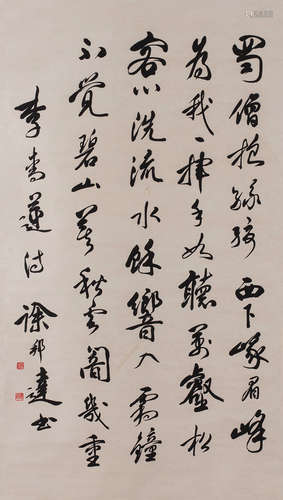 蜀僧抱綠綺西下峨眉峰
為我一揮手如聽萬壑松
客心洗流水餘響入霜鐘
不覺碧山暮秋雲闇幾重
李青蓮詩 徐邦達書